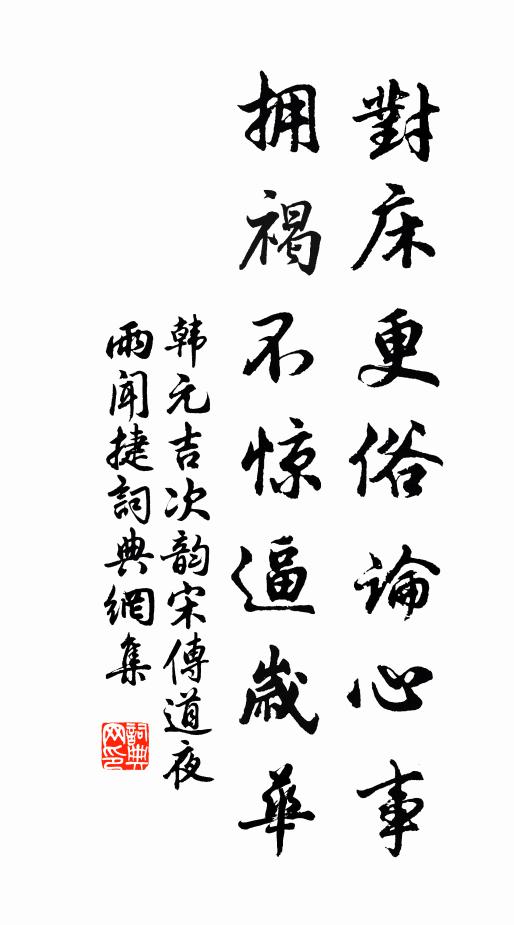 對床更俗論心事
拥褐不惊逼歲華
韩元吉次韵宋傳道夜
雨闻捷詞典網集
詞典网印